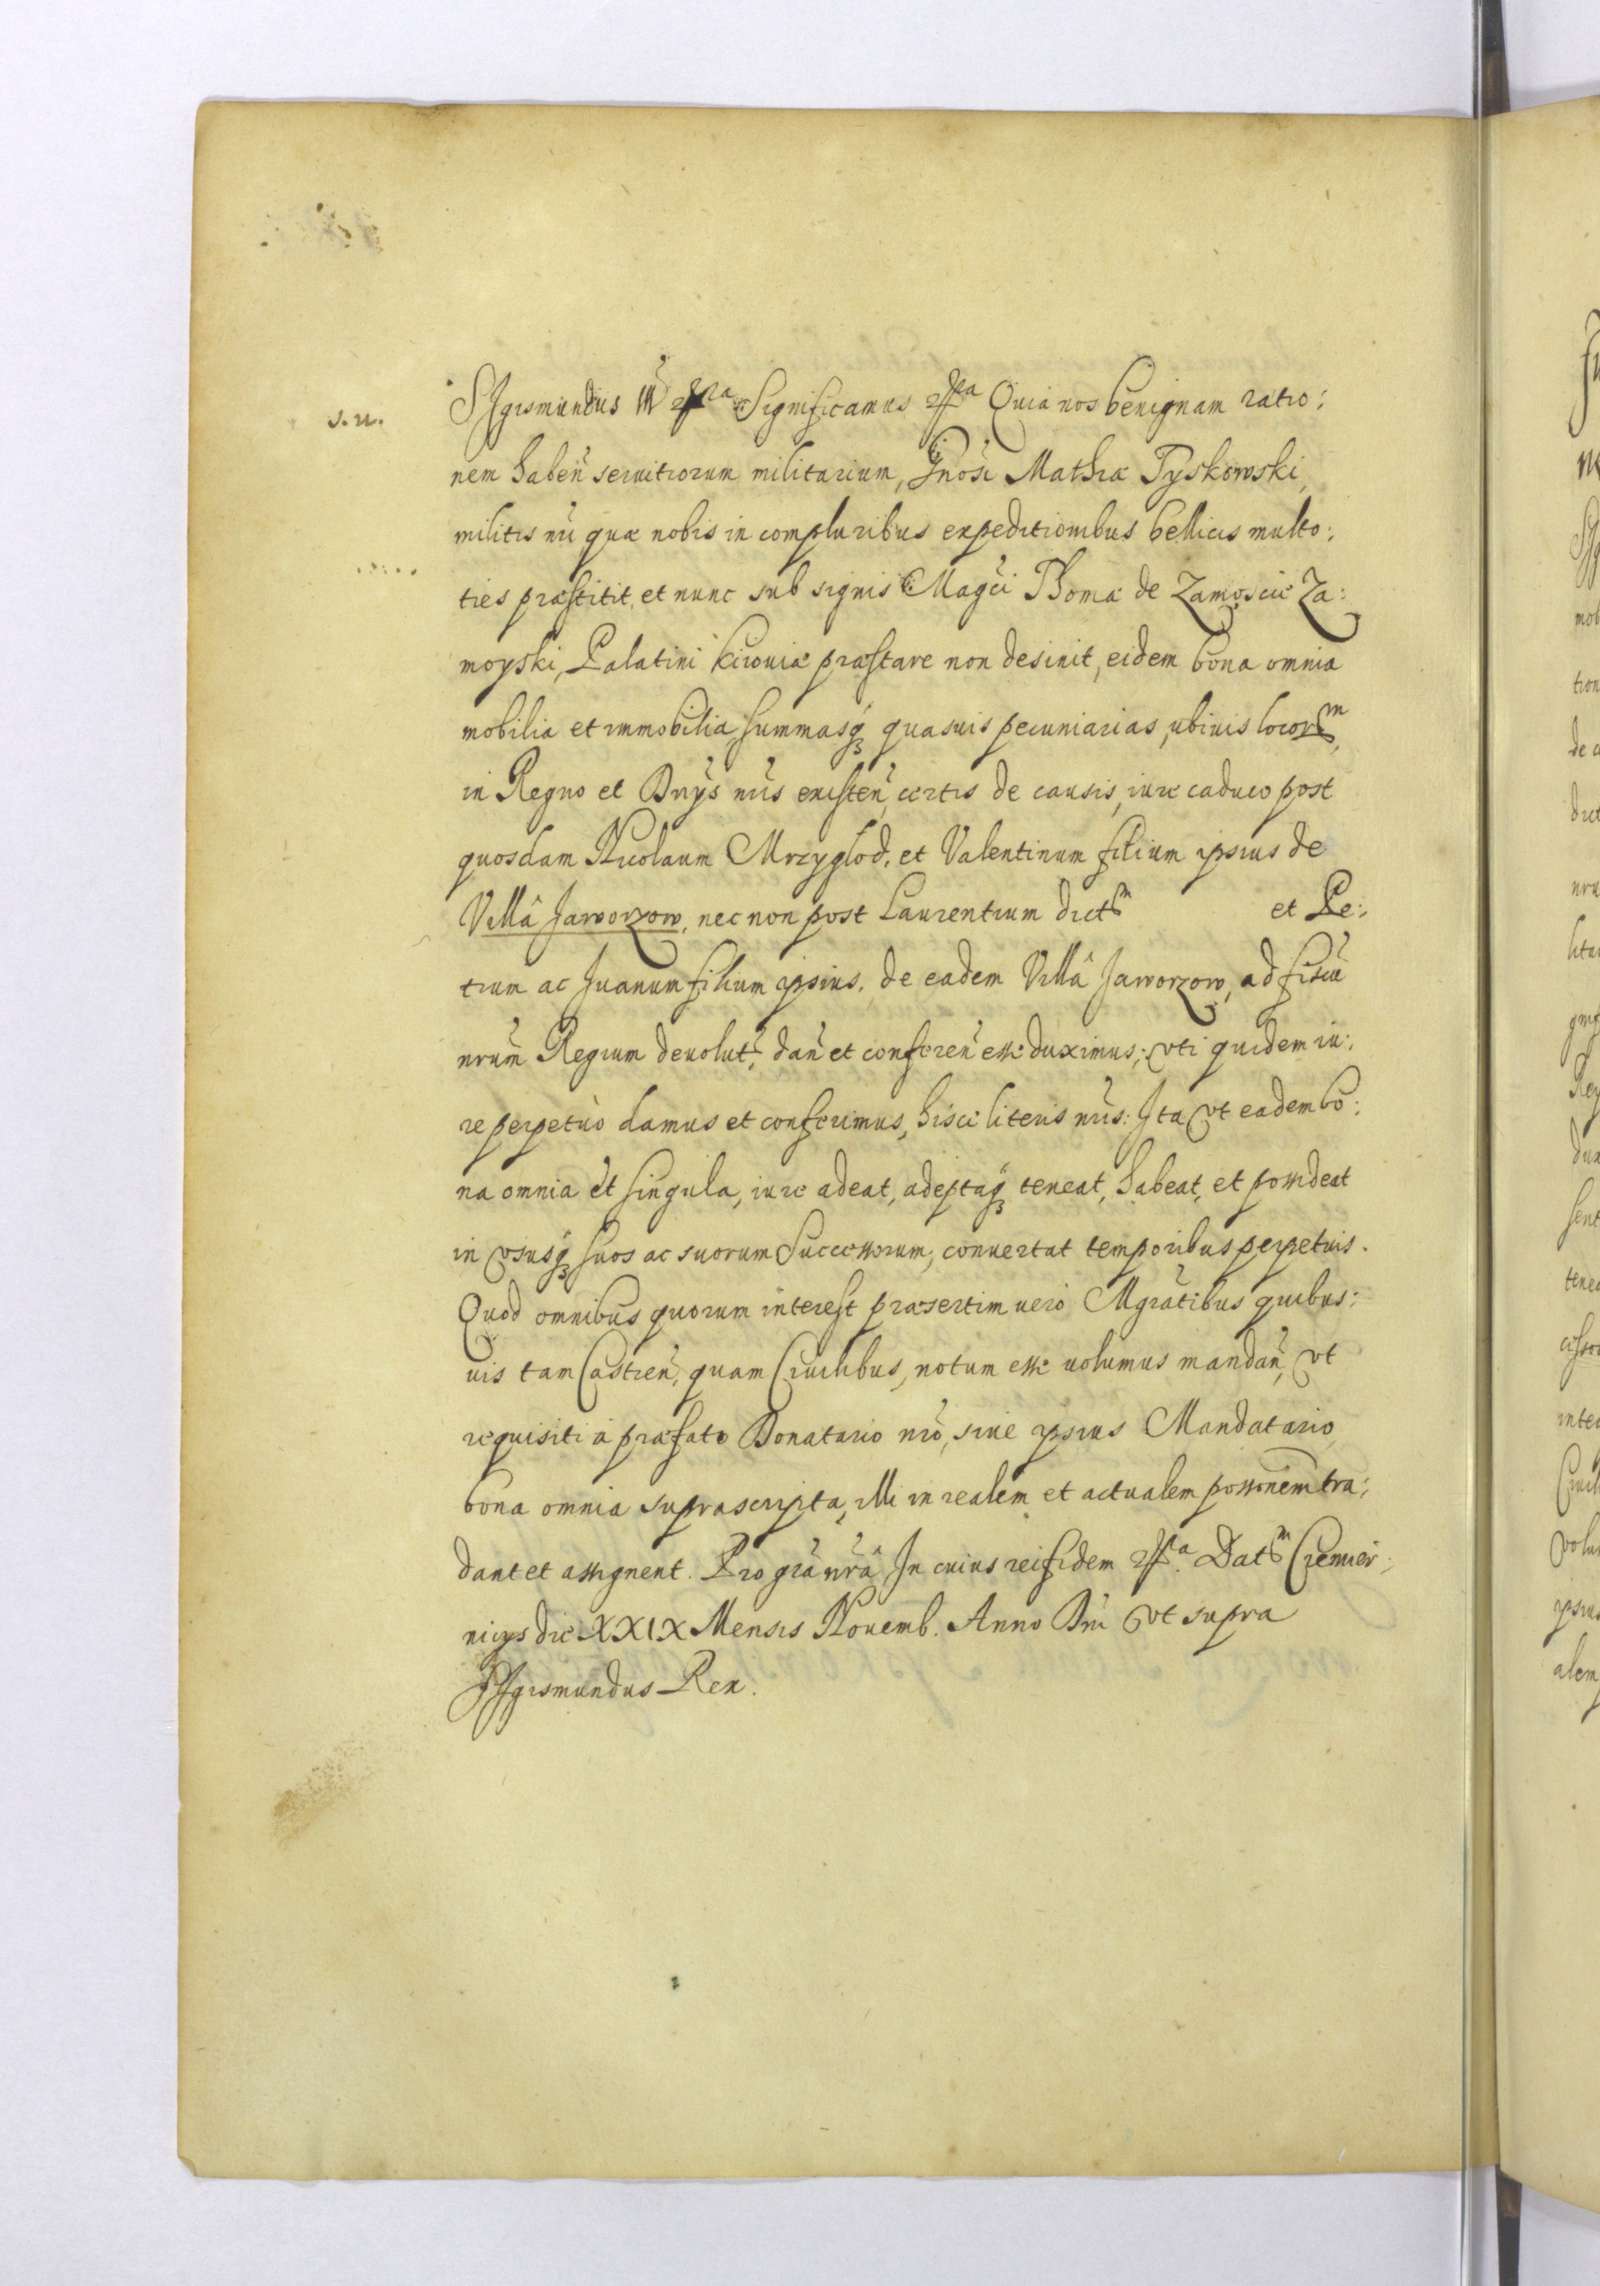 s. n.
Sigismundus III etc̃ra Significamus etc̃a Quia nos benignam ratio:
nem haben̄ seruitiorum militarium, Gn̄osi Mathiæ Tyskowski,
militis nr̄i quæ nobis in compluribus expeditionibus bellicis multo:
ties præstitit, et nunc sub signis Mag̃ci Thomæ de Zamoscie Za:
moyski, Palatini Kiiouiæ præstare non desinit, eidem bona omnia
mobilia et immobilia, summasq́ʒ quasuis pecuniarias, ubiuis locorᵐ,
in Regno et Dn̄ys nr̄is existen̄, certis de causis, iure caduco post
quosdam Nicolaum Mrzyglod, et Valentinum filium ipsius de
Villâ Jaworzow, nec non post Laurentium dictᵐ et Pe:
trum ac Iuanum filium ipsius, de eadem Villâ Jaworzow, ad fiscū
nr̄um Regium deuolut̄, dan̄ et conferen̄ esse duximus; vti quidem iu:
re perpetuò damus et conferimus, hisce literis nr̄is: Ita vt eadem bo:
na omnia et singula, iure adeat, adeptaq́ʒ teneat, habeat, et possideat
in vsusq́ʒ suos ac suorum Successorum, conuertat temporibus perpetuis.
Quod omnibus quorum interest præsertim uero Mgr̄atibus quibus:
uis tam Castren̄, quam Ciuilibus, notum esse uolumus mandan̄, vt
requisiti à præfato Donatario nr̄o, siue ipsius Mandatario,
bona omnia suprascripta, illi in realem et actualem poss̄onem tra:
dant et assignent. Pro gr̄a nr̄a In cuius rei fidem etc̃a. Datᵐ Cremier:
nicys die XXIX Mensis Nouemb. Anno Dn̄i vt supra
Sigismundus Rex.